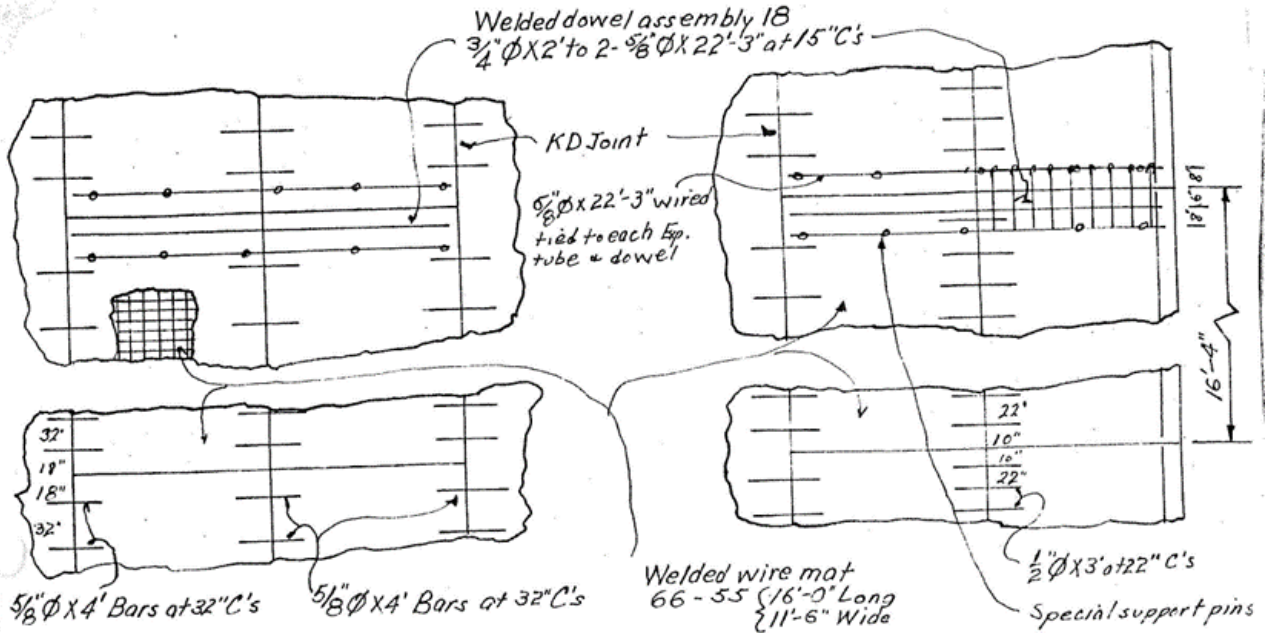 Welded dowel assembly 18
3/4"ØX2' to 2-5/8"ØX22'-3" at 15"C's
KD Joint
5/8"ØX22'-3" wired
tied to each Exp.
tube & dowel
18"|6"|8"|
16'-4"
32"
18"
18"
32"
22"
10"
10"
22"
5/8"ØX4' Bars at 32"C's
5/8"ØX4' Bars at 32"C's
Welded wire mat
66-55 {16'-0" Long
{11'-6" Wide
1/2"ØX3' at 22" C's
Special support pins